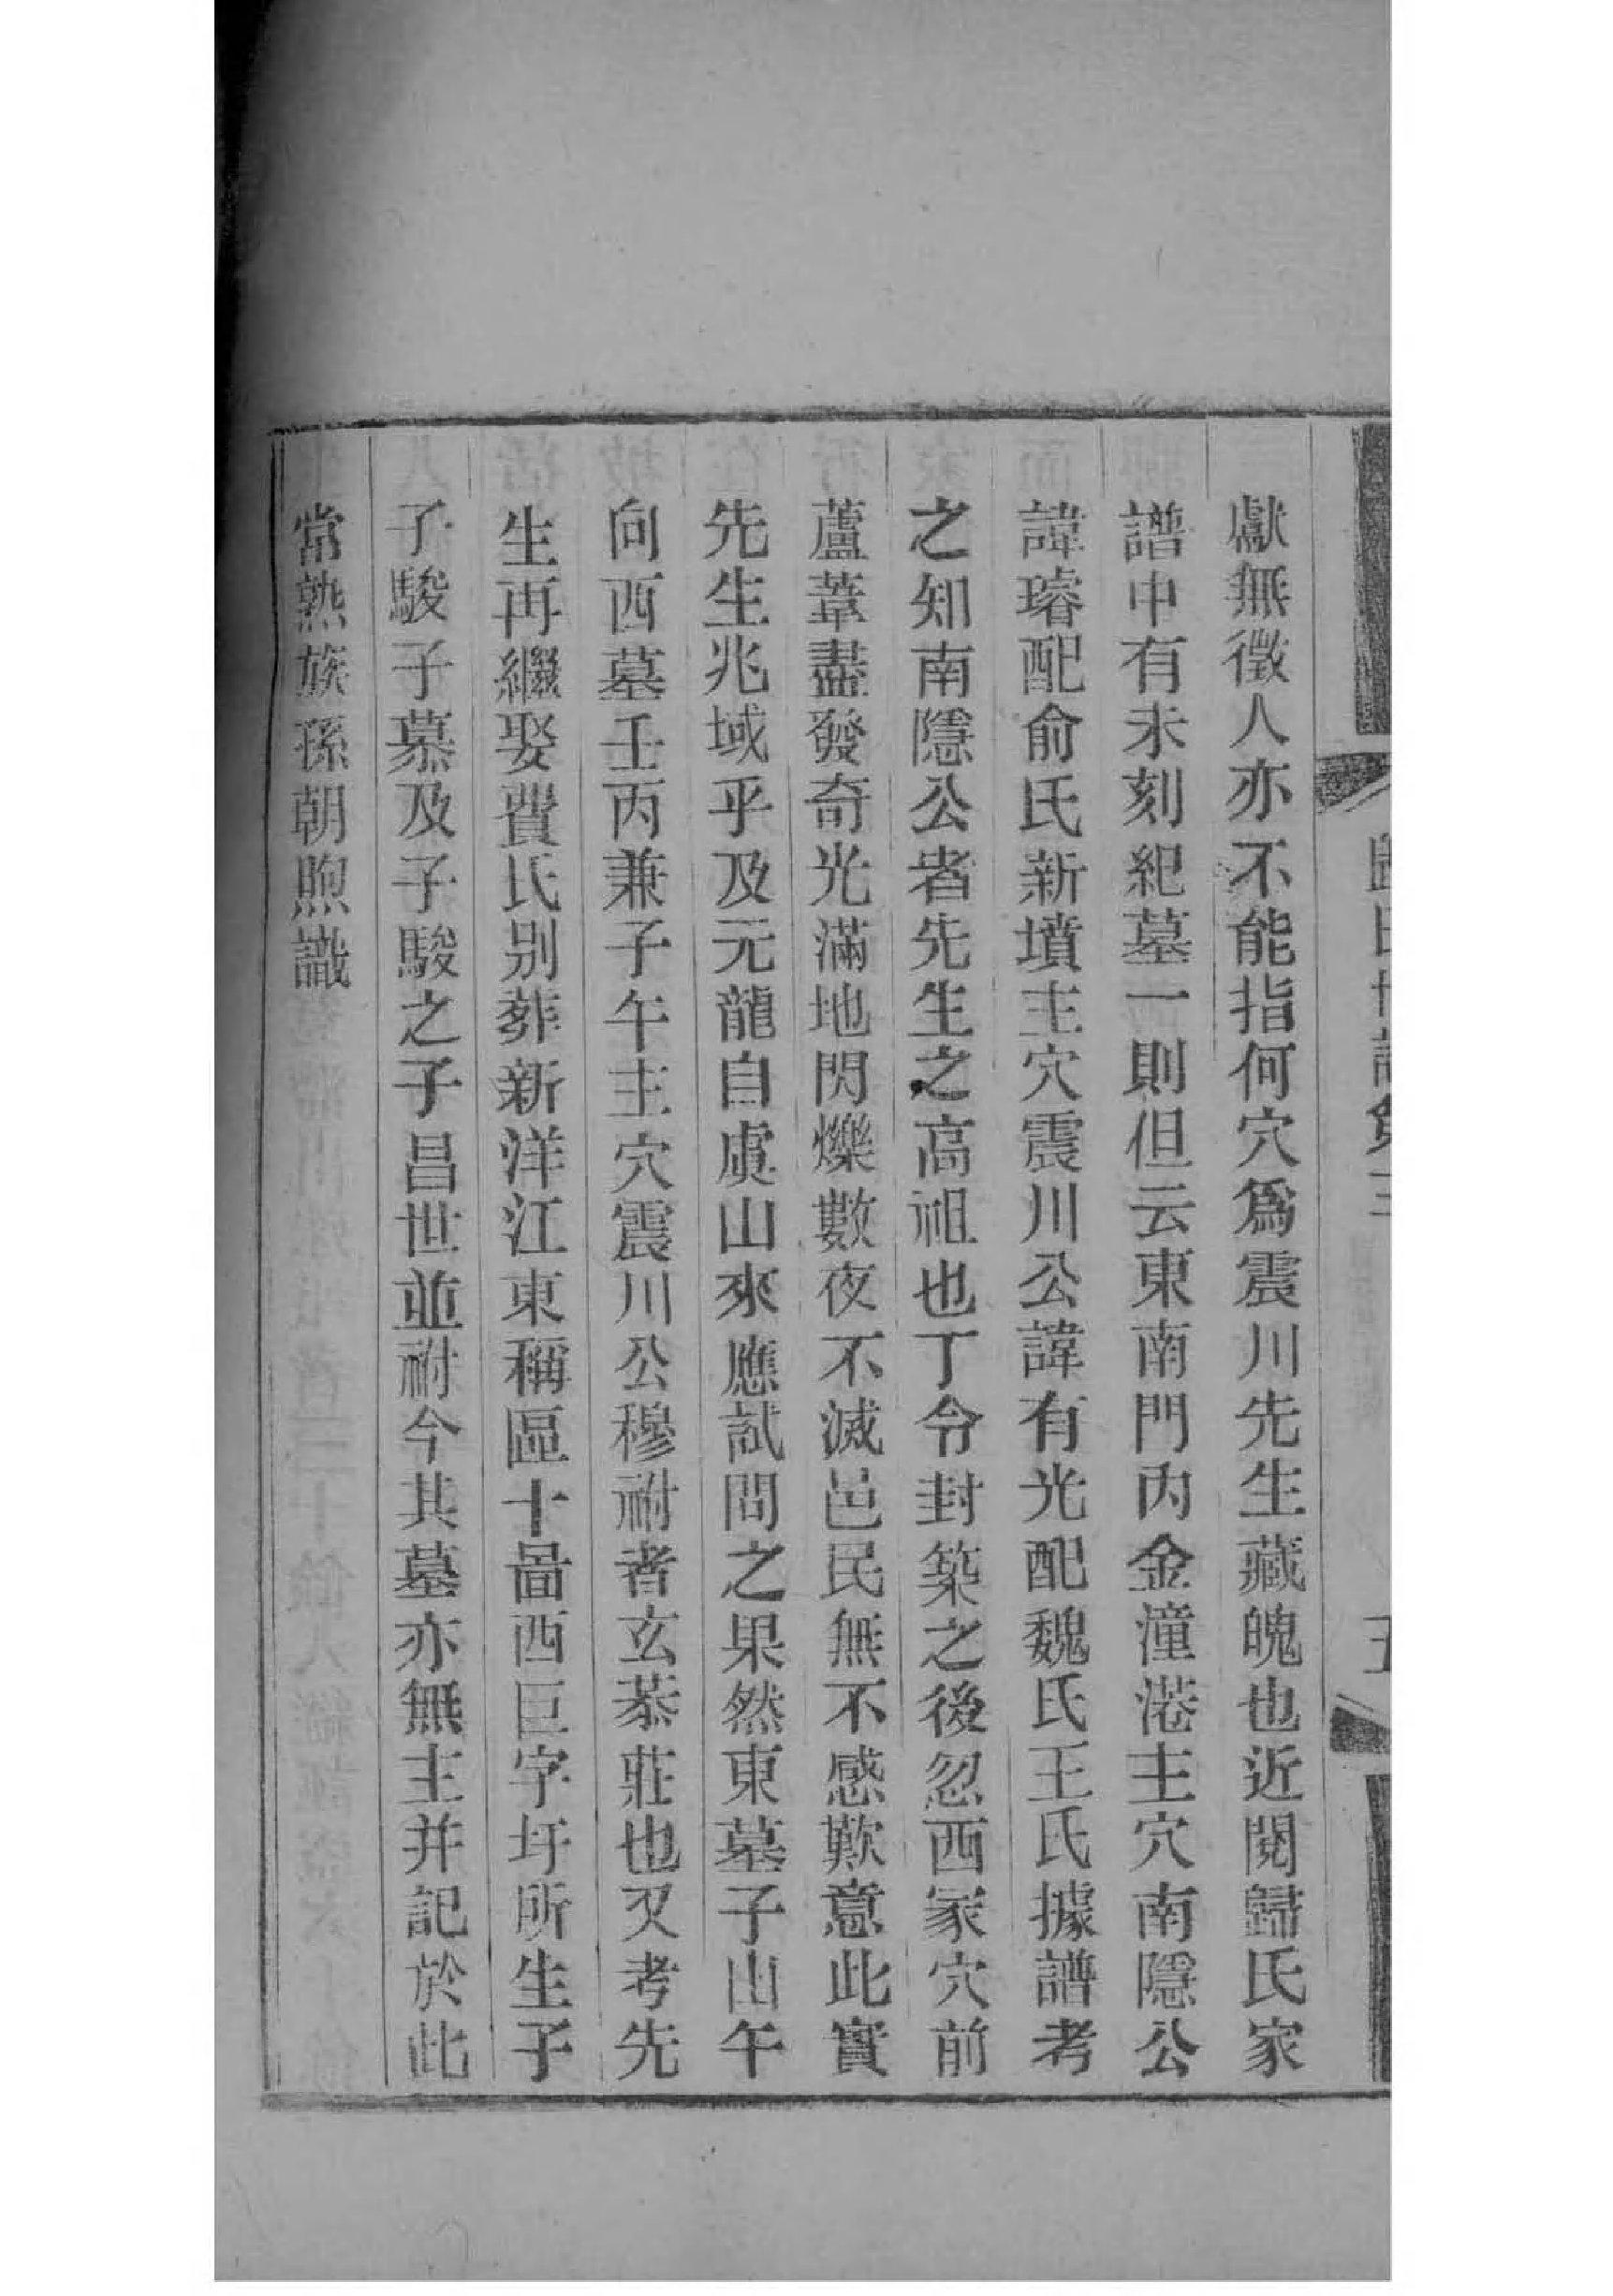 獻無徵人亦不能指何穴爲震川先生藏魄也近閱歸氏家
譜中有未刻紀墓一則但云東南門內金潼港主穴南隱公
諱璿配俞氏新墳主穴震川公諱有光配魏氏王氏據譜考
之知南隱公者先生之高祖也丁令封築之後忽西家穴前
蘆葦盡發奇光滿地閃爍數夜不滅邑民無不感歎意此實
先生兆域乎及元龍自虞山來應試問之果然東墓子山午
向西墓壬丙兼子午主穴震川公穆祔者玄恭莊也又考先
生再繼娶費氏別葬新洋江東稱區十啚西巨字圩所生子
子駿子慕及子駿之子昌世並祔今其墓亦無主并記於此
常熟族孫朝煦識